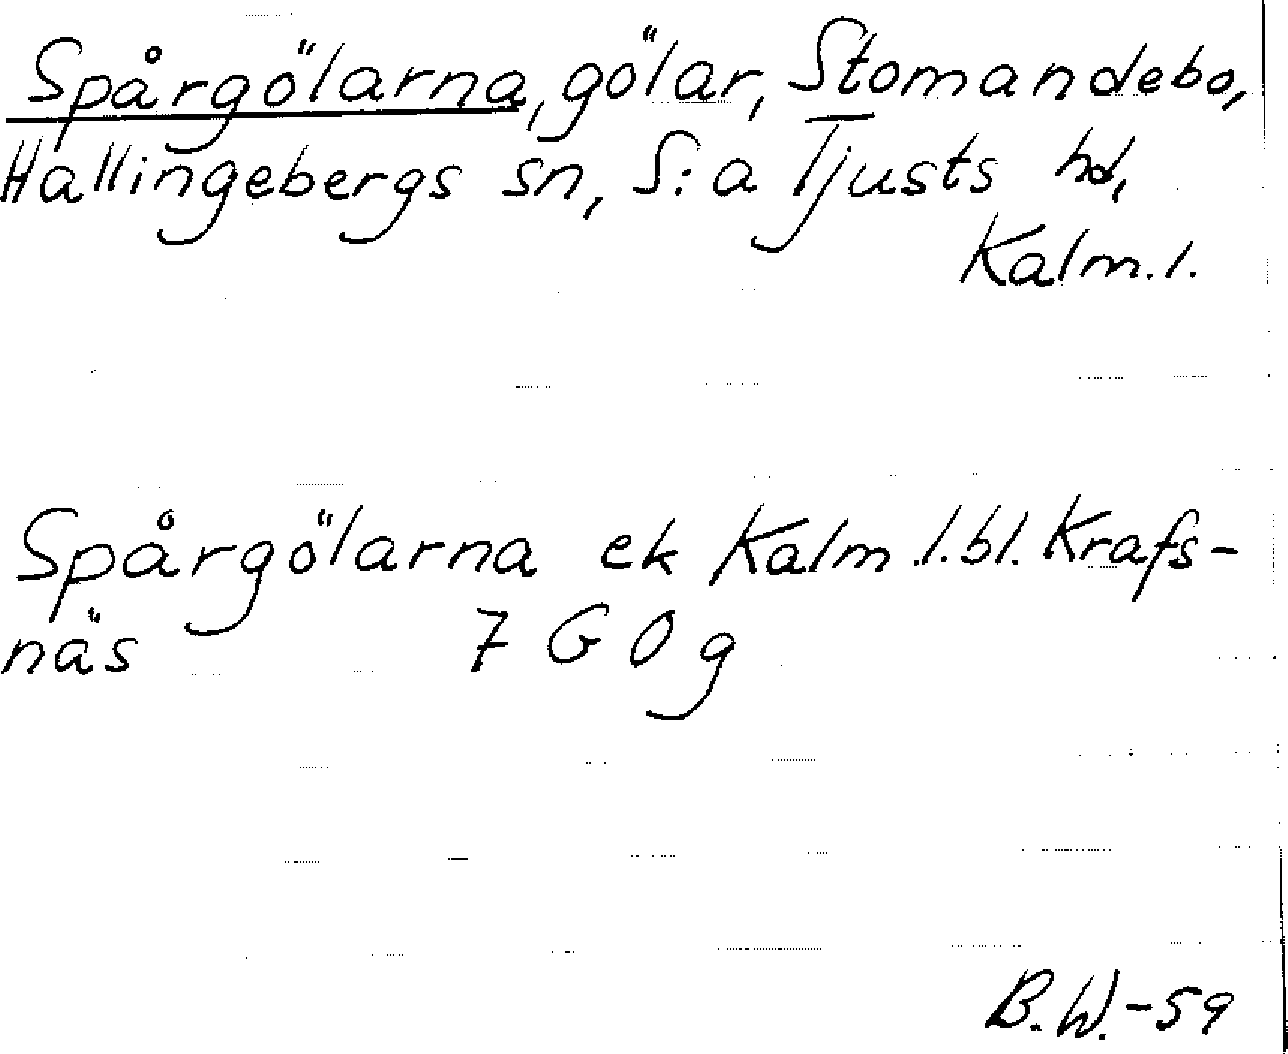 Spårgölarna, gölar, Stomandebo,
Hallingebergs sn, S:a Tjusts hd,
Kalm. l.
Spårgölarna ek Kalm l. bl. Krafs-
näs 7 G O g
B.W.-59